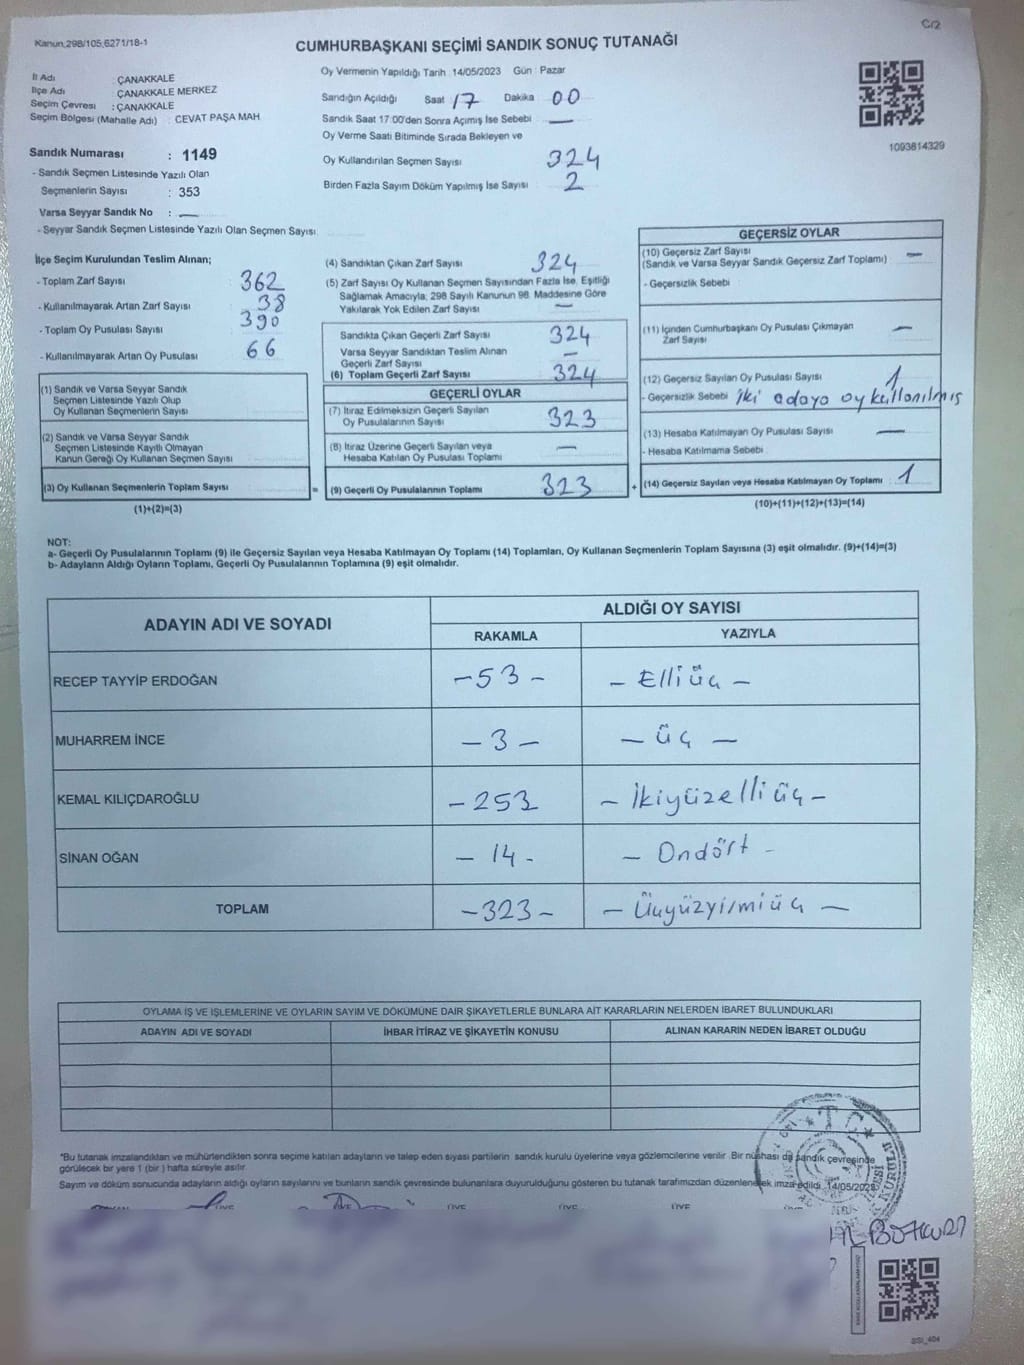 C/2
Kanun 298/105,6271/18-1
CUMHURBAŞKANI SEÇİMİ SANDIK SONUÇ TUTANAĞI
İl Adı : ÇANAKKALE
İlçe Adı : ÇANAKKALE MERKEZ
Seçim Çevresi : ÇANAKKALE
Seçim Bölgesi (Mahalle Adı) : CEVAT PAŞA MAH.
Oy Vermenin Yapıldığı Tarih : 14/05/2023 Gün : Pazar
Sandığın Açıldığı Saat 17 Dakika 00
Sandık Saat 17:00'den Sonra Açımış İse Sebebi —
Oy Verme Saati Bitiminde Sırada Bekleyen ve
Oy Kullandırılan Seçmen Sayısı 324
Birden Fazla Sayım Döküm Yapılmış İse Sayısı 2
1093814329
Sandık Numarası : 1149
- Sandık Seçmen Listesinde Yazılı Olan
Seçmenlerin Sayısı : 353
Varsa Seyyar Sandık No : —
- Seyyar Sandık Seçmen Listesinde Yazılı Olan Seçmen Sayısı:
İlçe Seçim Kurulundan Teslim Alınan;
- Toplam Zarf Sayısı 362
- Kullanılmayarak Artan Zarf Sayısı 38
- Toplam Oy Pusulası Sayısı 390
- Kullanılmayarak Artan Oy Pusulası 66
(1) Sandık ve Varsa Seyyar Sandık
Seçmen Listesinde Yazılı Olup
Oy Kullanan Seçmenlerin Sayısı
(2) Sandık ve Varsa Seyyar Sandık
Seçmen Listesinde Kayıtlı Olmayan
Kanun Gereği Oy Kullanan Seçmen Sayısı
(3) Oy Kullanan Seçmenlerin Toplam Sayısı
(1)+(2)=(3)
(4) Sandıktan Çıkan Zarf Sayısı 324
(5) Zarf Sayısı Oy Kullanan Seçmen Sayısından Fazla İse, Eşitliği
Sağlamak Amacıyla; 298 Sayılı Kanunun 98. Maddesine Göre
Yakılarak Yok Edilen Zarf Sayısı —
Sandıkta Çıkan Geçerli Zarf Sayısı 324
Varsa Seyyar Sandıktan Teslim Alınan
Geçerli Zarf Sayısı —
(6) Toplam Geçerli Zarf Sayısı 324
GEÇERLİ OYLAR
(7) İtiraz Edilmeksizin Geçerli Sayılan
Oy Pusulalarının Sayısı 323
(8) İtiraz Üzerine Geçerli Sayılan veya
Hesaba Katılan Oy Pusulası Toplamı —
= (9) Geçerli Oy Pusulalarının Toplamı 323
GEÇERSİZ OYLAR
(10) Geçersiz Zarf Sayısı
(Sandık ve Varsa Seyyar Sandık Geçersiz Zarf Toplamı) —
- Geçersizlik Sebebi
(11) İçinden Cumhurbaşkanı Oy Pusulası Çıkmayan
Zarf Sayısı —
(12) Geçersiz Sayılan Oy Pusulası Sayısı 1
- Geçersizlik Sebebi iki adaya oy kullanılmış
(13) Hesaba Katılmayan Oy Pusulası Sayısı —
- Hesaba Katılmama Sebebi
+ (14) Geçersiz Sayılan veya Hesaba Katılmayan Oy Toplamı : 1
(10)+(11)+(12)+(13)=(14)
NOT:
a- Geçerli Oy Pusulalarının Toplamı (9) ile Geçersiz Sayılan veya Hesaba Katılmayan Oy Toplamı (14) Toplamları, Oy Kullanan Seçmenlerin Toplam Sayısına (3) eşit olmalıdır. (9)+(14)=(3)
b- Adayların Aldığı Oyların Toplamı, Geçerli Oy Pusulalarının Toplamına (9) eşit olmalıdır.
ADAYIN ADI VE SOYADI ALDIĞI OY SAYISI
RAKAMLA YAZIYLA
RECEP TAYYİP ERDOĞAN -53- - Elli üç -
MUHARREM İNCE -3- - üç -
KEMAL KILIÇDAROĞLU -253 - İkiyüzelli üç -
SİNAN OĞAN - 14 - - Ondört -
TOPLAM -323- - Üçyüzyirmi üç -
OYLAMA İŞ VE İŞLEMLERİNE VE OYLARIN SAYIM VE DÖKÜMÜNE DAİR ŞİKAYETLERLE BUNLARA AİT KARARLARIN NELERDEN İBARET BULUNDUKLARI
ADAYIN ADI VE SOYADI İHBAR İTİRAZ VE ŞİKAYETİN KONUSU ALINAN KARARIN NEDEN İBARET OLDUĞU
*Bu tutanak imzalandıktan ve mühürlendikten sonra seçime katılan adayların ve talep eden siyasi partilerin sandık kurulu üyelerine veya gözlemcilerine verilir. Bir nüshası da sandık çevresinde
görülecek bir yere 1 (bir) hafta süreyle asılır.
Sayım ve döküm sonucunda adayların aldığı oyların sayılarını ve bunların sandık çevresinde bulunanlara duyurulduğunu gösteren bu tutanak tarafımızdan düzenlenerek imza edildi. 14/05/2023
T.C.
SSİ_404